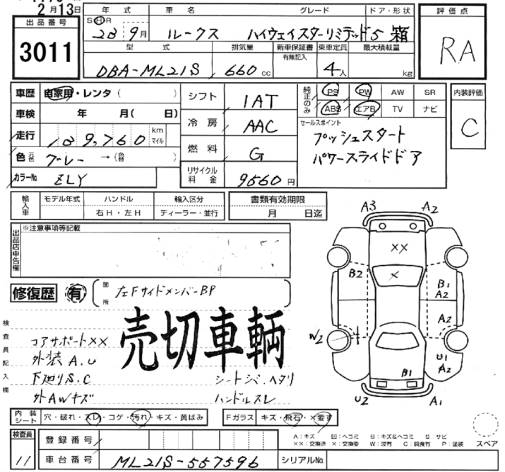 2月13日
出品番号
3011
年式 車名 グレード ドア・形状
S H R
23年9月 ルークス ハイウェイスターリミテッド 5 箱
型式 排気量 新車保証書 有無記入 乗車定員 最大積載量
DBA-ML21S 660cc 4人 kg
評価点
RA
車歴 自家用・レンタ( )
車検 年 月( )
走行 km マイル
色 元色 グレー→(替色 )
カラーNo ZLY
シフト IAT
冷房 AAC
燃料 G
リサイクル料金 9560円
純正のみ PS PW AW SR
ABS エアB TV ナビ
セールスポイント
プッシュスタート
パワースライドドア
内装評価
C
輸入車 モデル年式 ハンドル 輸入区分 書類有効期限
右H・左H ディーラー・並行 月 日迄
出品店申告欄 ※注意事項等記載
修復歴 有 箇所 左FサイドメンバーBP
検査員記入欄
コアサポートXX
外装A.U
下廻りS.C
外AWキズ
売切車輌
ハンドルスレ
A3 A2
XX
X
B2 B1 A2
W2 U1 A2
B1
U2 A1
内装シート 穴・破れ・スレ・コゲ・汚れ・キズ・黄ばみ Fガラス キズ・飛石・×要す
スペア
検査員 11
登録番号
車台番号 ML21S-557596 シリアルNo